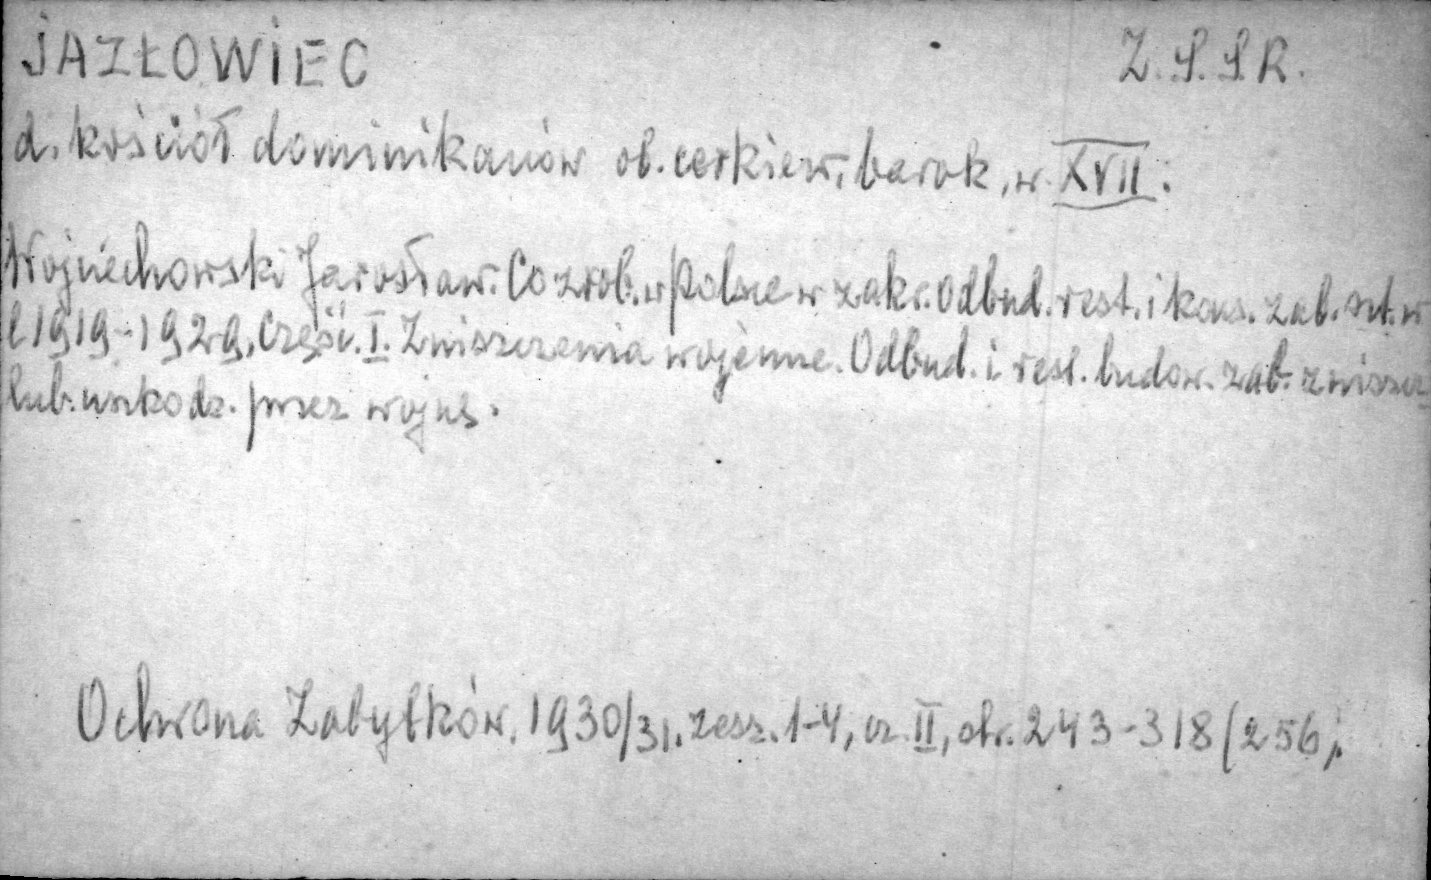 JAZŁOWIEC Z.S.S.R.
d. kościół dominikanów ob. cerkiew, barok, w. XVII.
Wojciechowski Jarosław. Co zrob. w Polsce w zakr. odbud. rest. i kons. zab. szt. w
l 1919-1929, Część. I. Zniszczenia wojenne. Odbud. i rest. budow. zab. zniszcz
lub. uszkodz. przez wojnę.
Ochrona Zabytków, 1930/31. zesz. 1-4, cz. II, str. 243-318 (256).